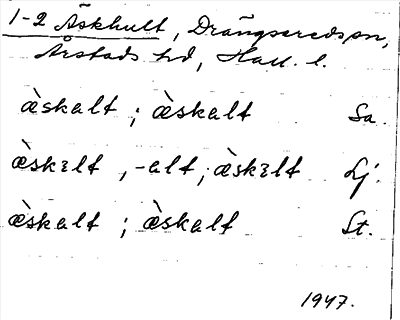 1-2 Äskhult, Drängsereds sn,
Årstads hd, Hall. l.
æ̀skalt ; æ̀skalt Sa.
æ̀skɩlt , -alt ; æ̀skɩlt Lj.
æ̀skalt ; æ̀skalt St.
1947.